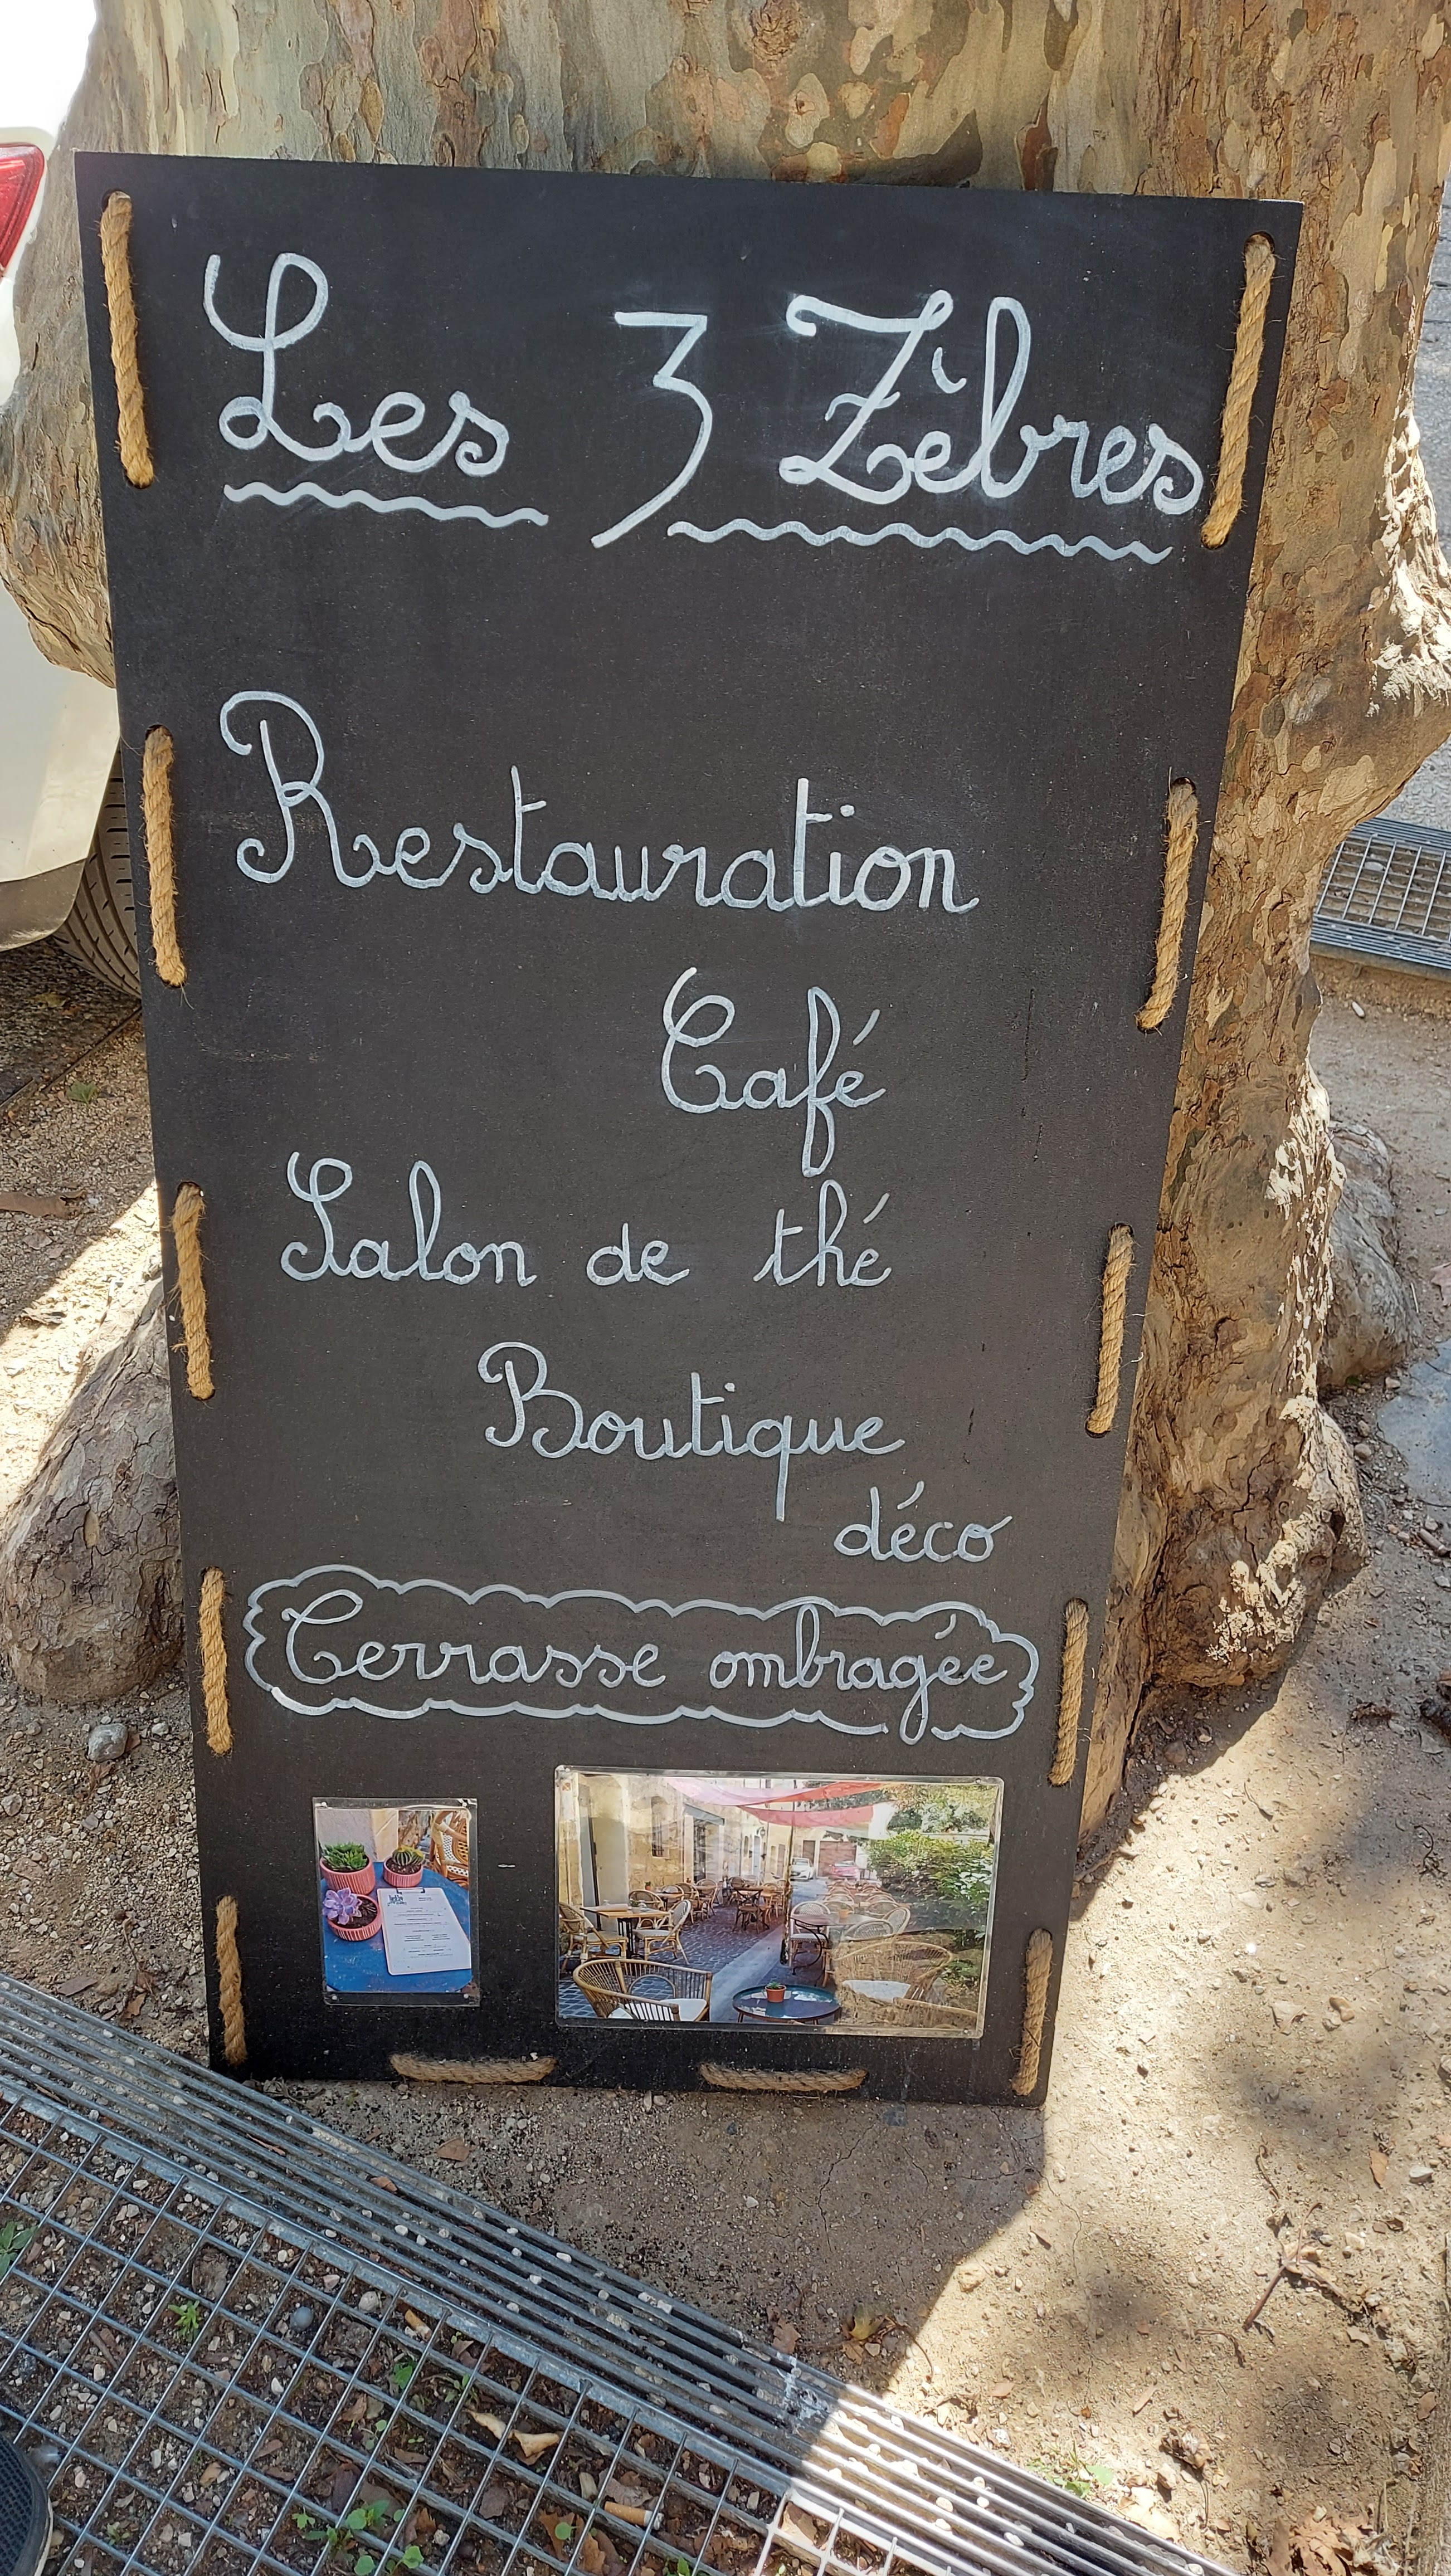 Les 3 Zèbres
Restauration
Café
Salon de thé
Boutique
déco
Terrasse ombragée